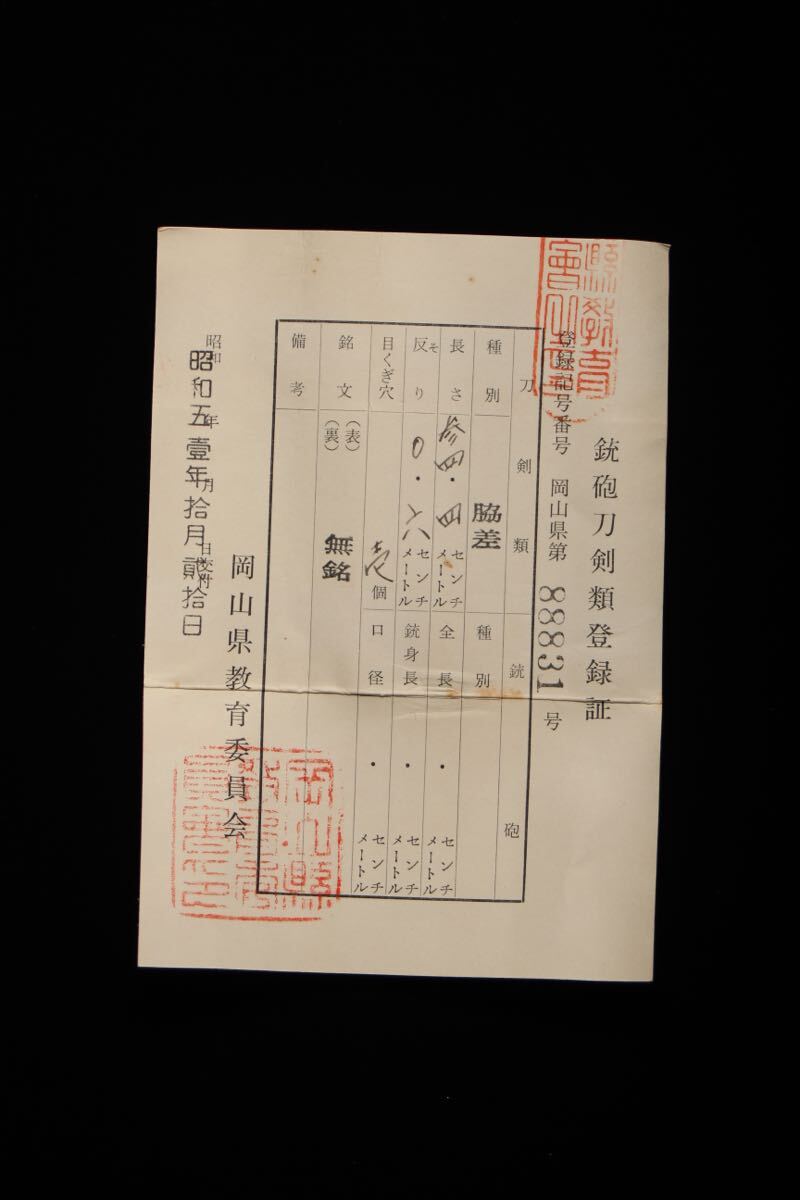 銃砲刀剣類登録証
登録記号番号 岡山県第 88831 号
刀剣類 銃砲
種別 脇差 種別
長さ 参四・四 センチメートル 全長 ・ センチメートル
反り そ 0・六 センチメートル 銃身長 ・ センチメートル
目くぎ穴 壱 個 口径 ・ センチメートル
銘文 (表) 無銘
(裏)
備考
岡山県教育委員会
昭和 年 月 日交付
昭和五壹年拾月貳拾日
縣教育
會之印
岡山縣